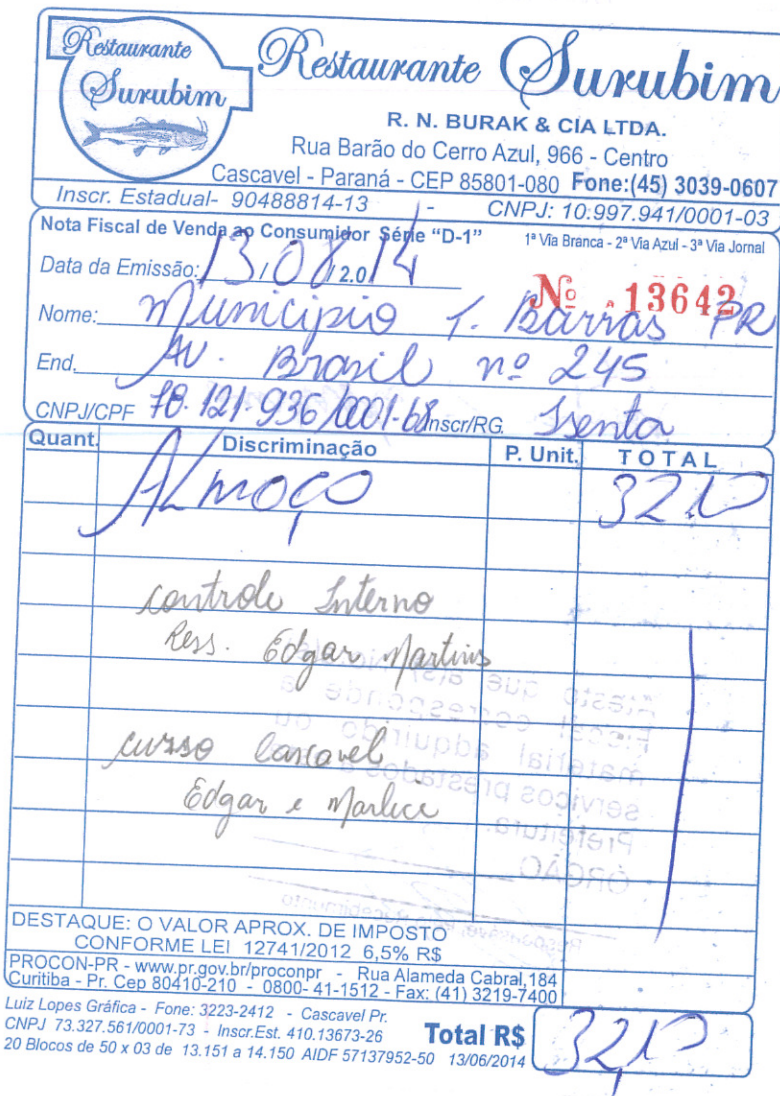 Restaurante
Surubim
Restaurante Surubim
R. N. BURAK & CIA LTDA.
Rua Barão do Cerro Azul, 966 - Centro
Cascavel - Paraná - CEP 85801-080 Fone:(45) 3039-0607
Inscr. Estadual- 90488814-13 - CNPJ: 10.997.941/0001-03
Nota Fiscal de Venda ao Consumidor Série "D-1" 1ª Via Branca - 2ª Via Azul - 3ª Via Jornal
Data da Emissão: 13/08/2.014
Nº 13642
Nome: Município T. Barras PR
End. AV. Brasil nº 245
CNPJ/CPF 78.121.936/0001-68 Inscr/RG. Isenta
Quant. Discriminação P. Unit. TOTAL
Almoço 32,10
controle Interno
Ress. Edgar Martins
Atesto que a(s) Nota
Fiscal corresponde a
material adquirido ou
serviços prestados a
Prefeitura.
ÓRGÃO
curso Cascavel
Edgar e Marlice
DESTAQUE: O VALOR APROX. DE IMPOSTO
CONFORME LEI 12741/2012 6,5% R$
PROCON-PR - www.pr.gov.br/proconpr - Rua Alameda Cabral,184
Curitiba - Pr. Cep 80410-210 - 0800- 41-1512 - Fax: (41) 3219-7400
Luiz Lopes Gráfica - Fone: 3223-2412 - Cascavel Pr.
CNPJ 73.327.561/0001-73 - Inscr.Est. 410.13673-26
20 Blocos de 50 x 03 de 13.151 a 14.150 AIDF 57137952-50 13/06/2014
Total R$ 32,10